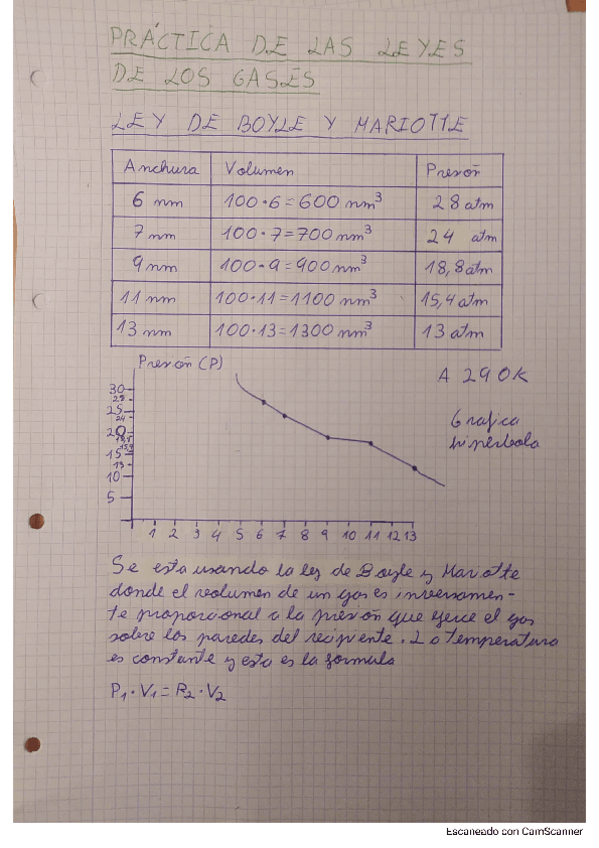 PRÁCTICA DE LAS LEYES
DE LOS GASES
LEY DE BOYLE Y MARIOTTE
Anchura Volumen Presión
6 nm 100·6=600 nm³ 28 atm
7 nm 100·7=700 nm³ 24 atm
9 nm 100·9=900 nm³ 18,8 atm
11 nm 100·11=1100 nm³ 15,4 atm
13 nm 100·13=1300 nm³ 13 atm
Presión (P)
A 290K
Grafica
hipérbola
30
28
25
24
20
15
13
10
5
1 2 3 4 5 6 7 8 9 10 11 12 13
Se esta usando la ley de Boyle y Mariotte
donde el volumen de un gas es inversamen-
te proporcional a la presión que ejerce el gas
sobre las paredes del recipiente. La temperatura
es constante y esta es la formula
P₁·V₁=P₂·V₂
Escaneado con CamScanner